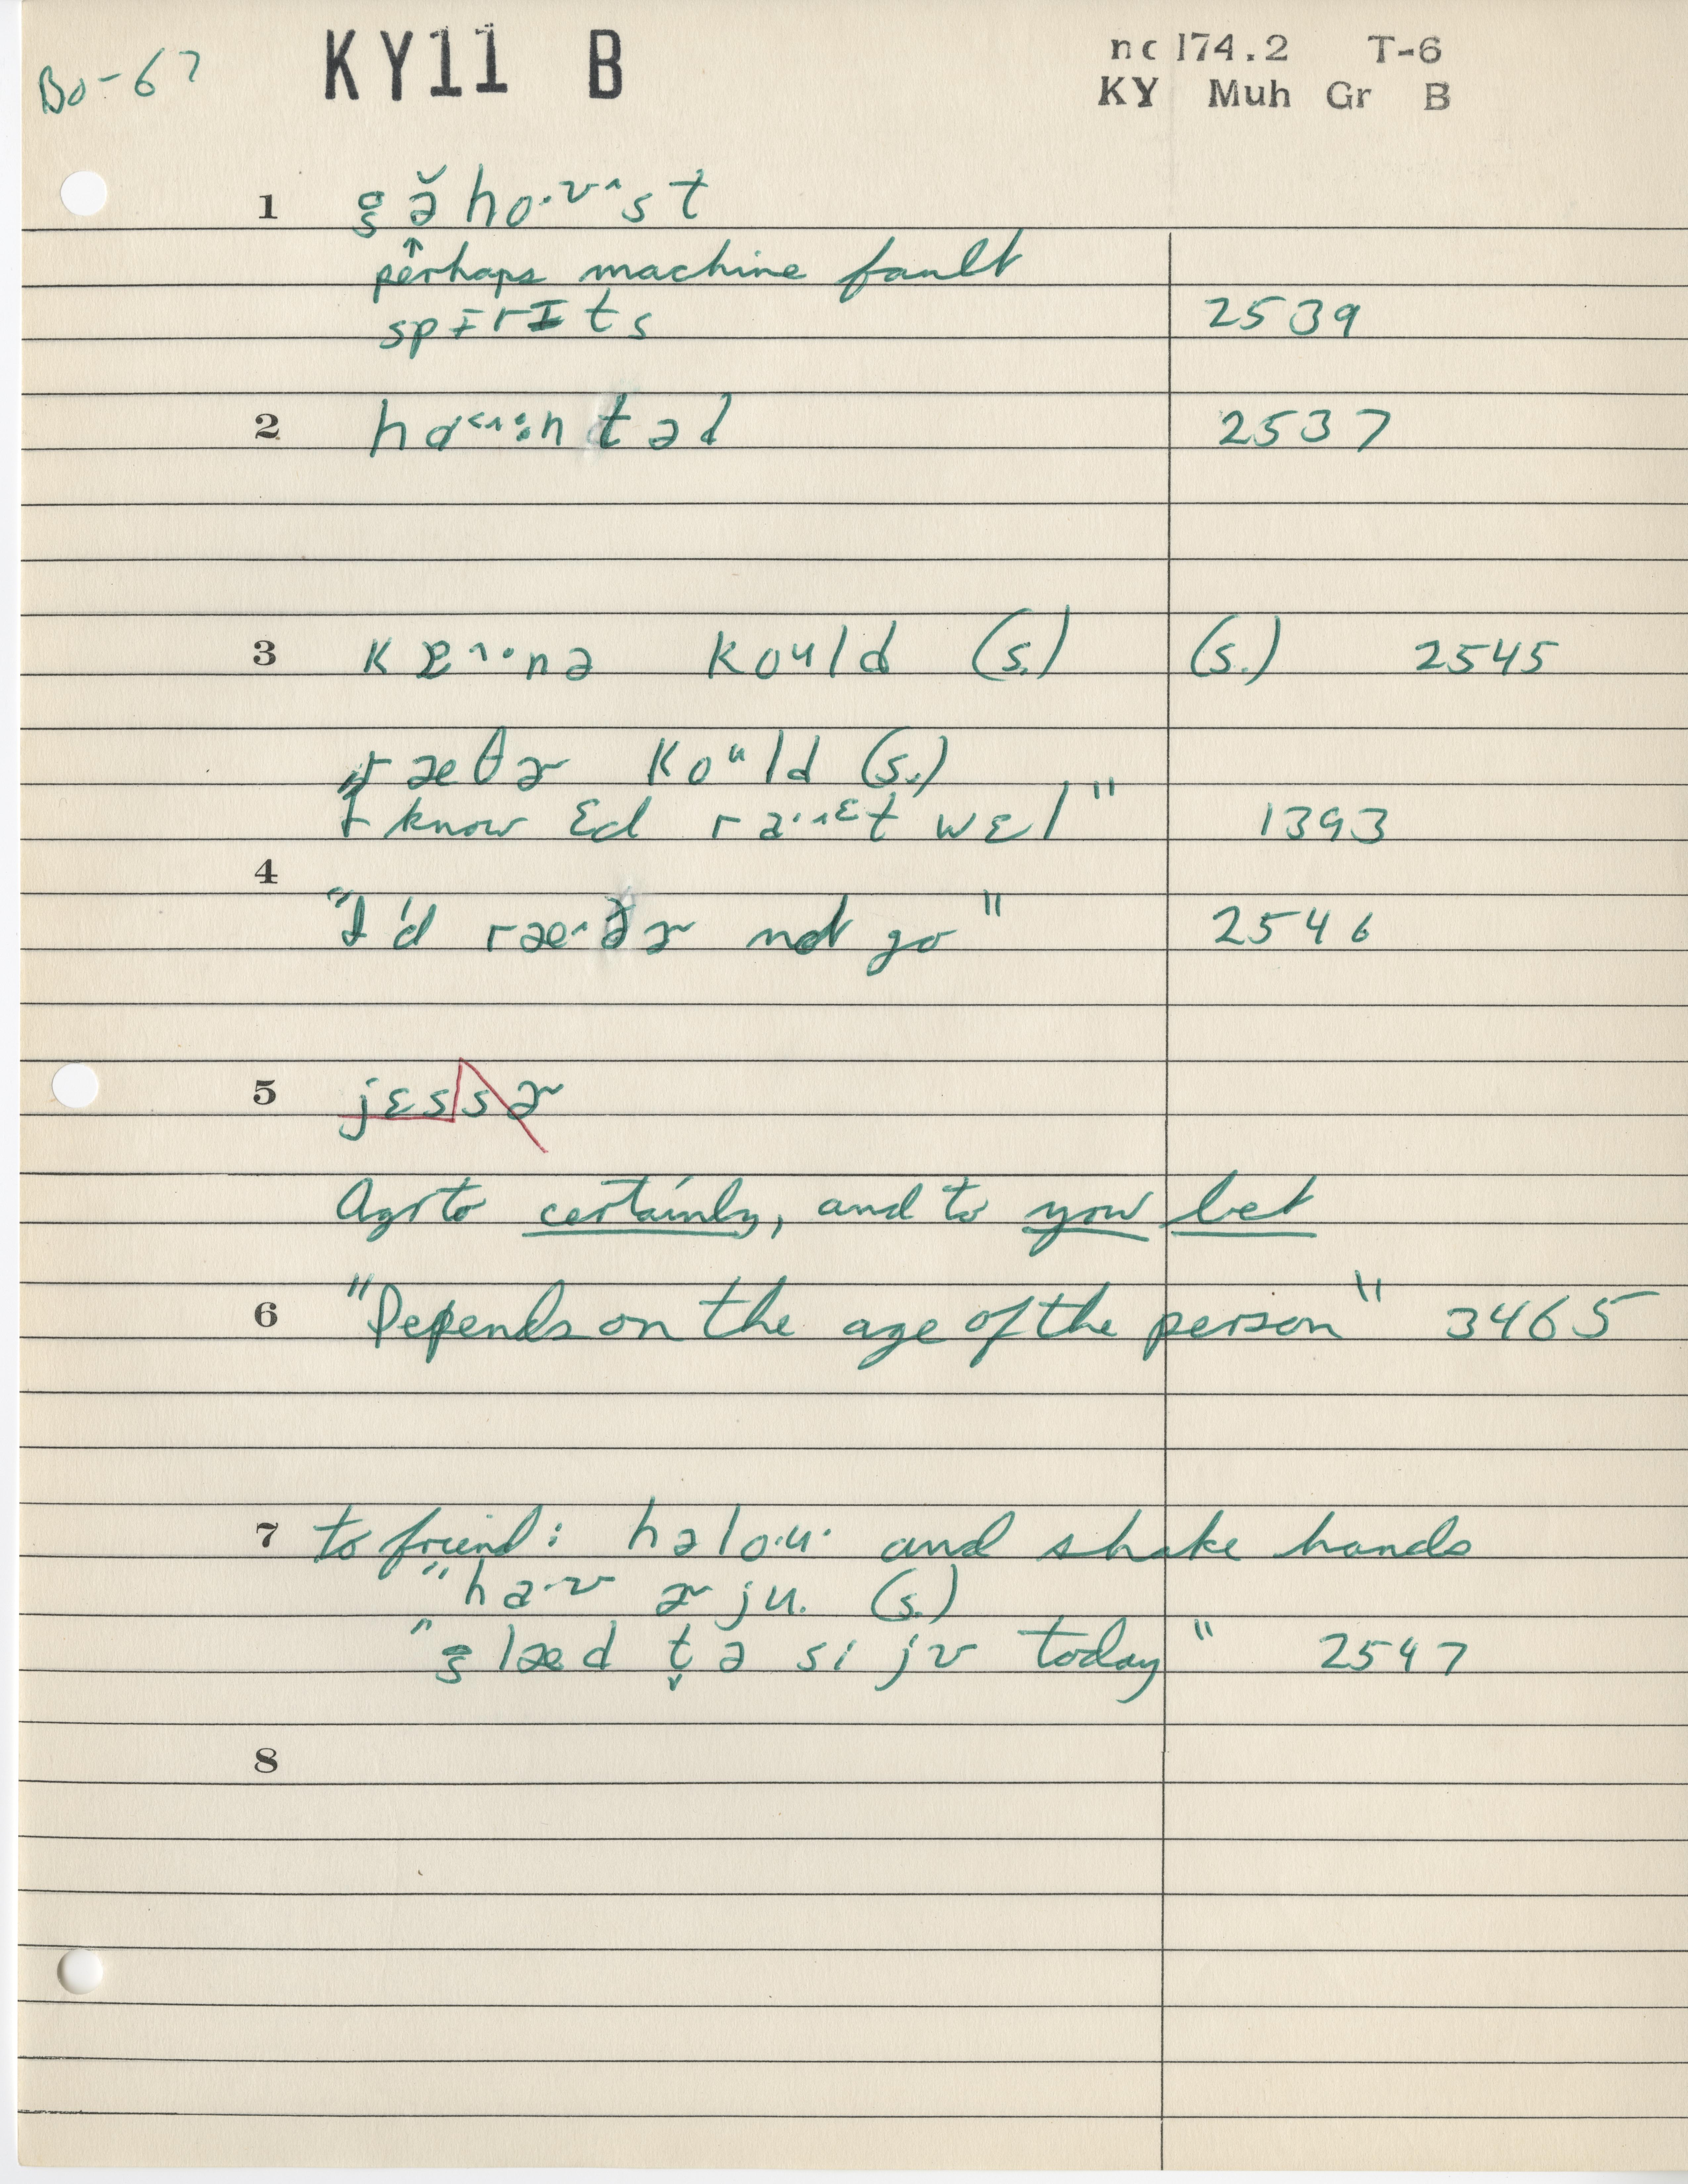 Bo-67 KY11 B nc 174.2 T-6
KY Muh Gr B
1 g ə̆ ho·ᶹ^st
↑
perhaps machine fault
spɪrɪts 2539
2 hɑ<^·:ntəd 2537
3 kɛ^·nə koᵘld (s.) (s.) 2545
ræθɚ koᵘld (s.)
I know Ed ra·^ɛt wɛl" 1393
4
"I'd ræ^ðɚ not go" 2546
5 jɛs sɚ
Agrto certainly, and to you bet
6 "Depends on the age of the person" 3465
7 to friend: həlo·u· and shake hands
"ha·ʊ ɚ ju. (s.)
"glæd t̬ə si jʊ today" 2547
8